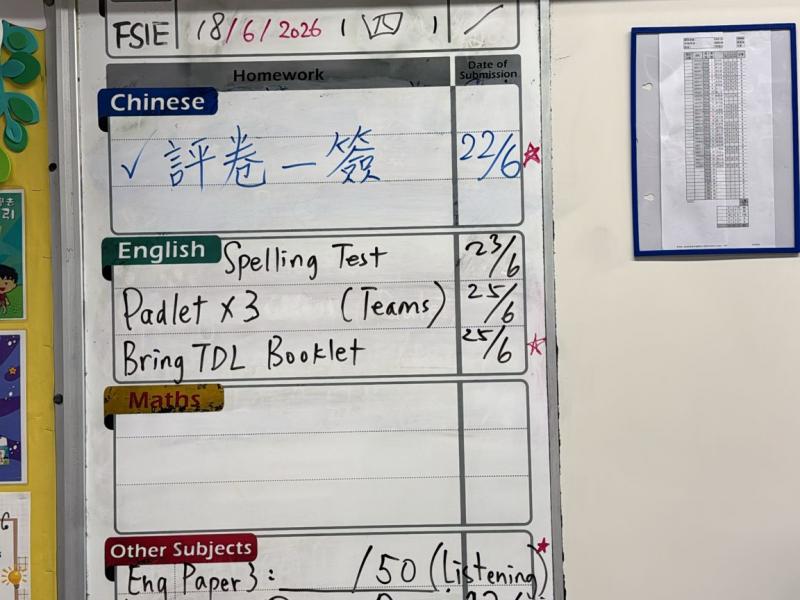 FSIE 18/6/2026 (四) /
Homework Date of Submission
Chinese
✓ 評卷一簽 22/6 ☆
English Spelling Test 23/6
Padlet x 3 (Teams) 25/6
Bring TDL Booklet 25/6 ☆
Maths
Other Subjects
Eng Paper 3: ____ /50 (Listening)